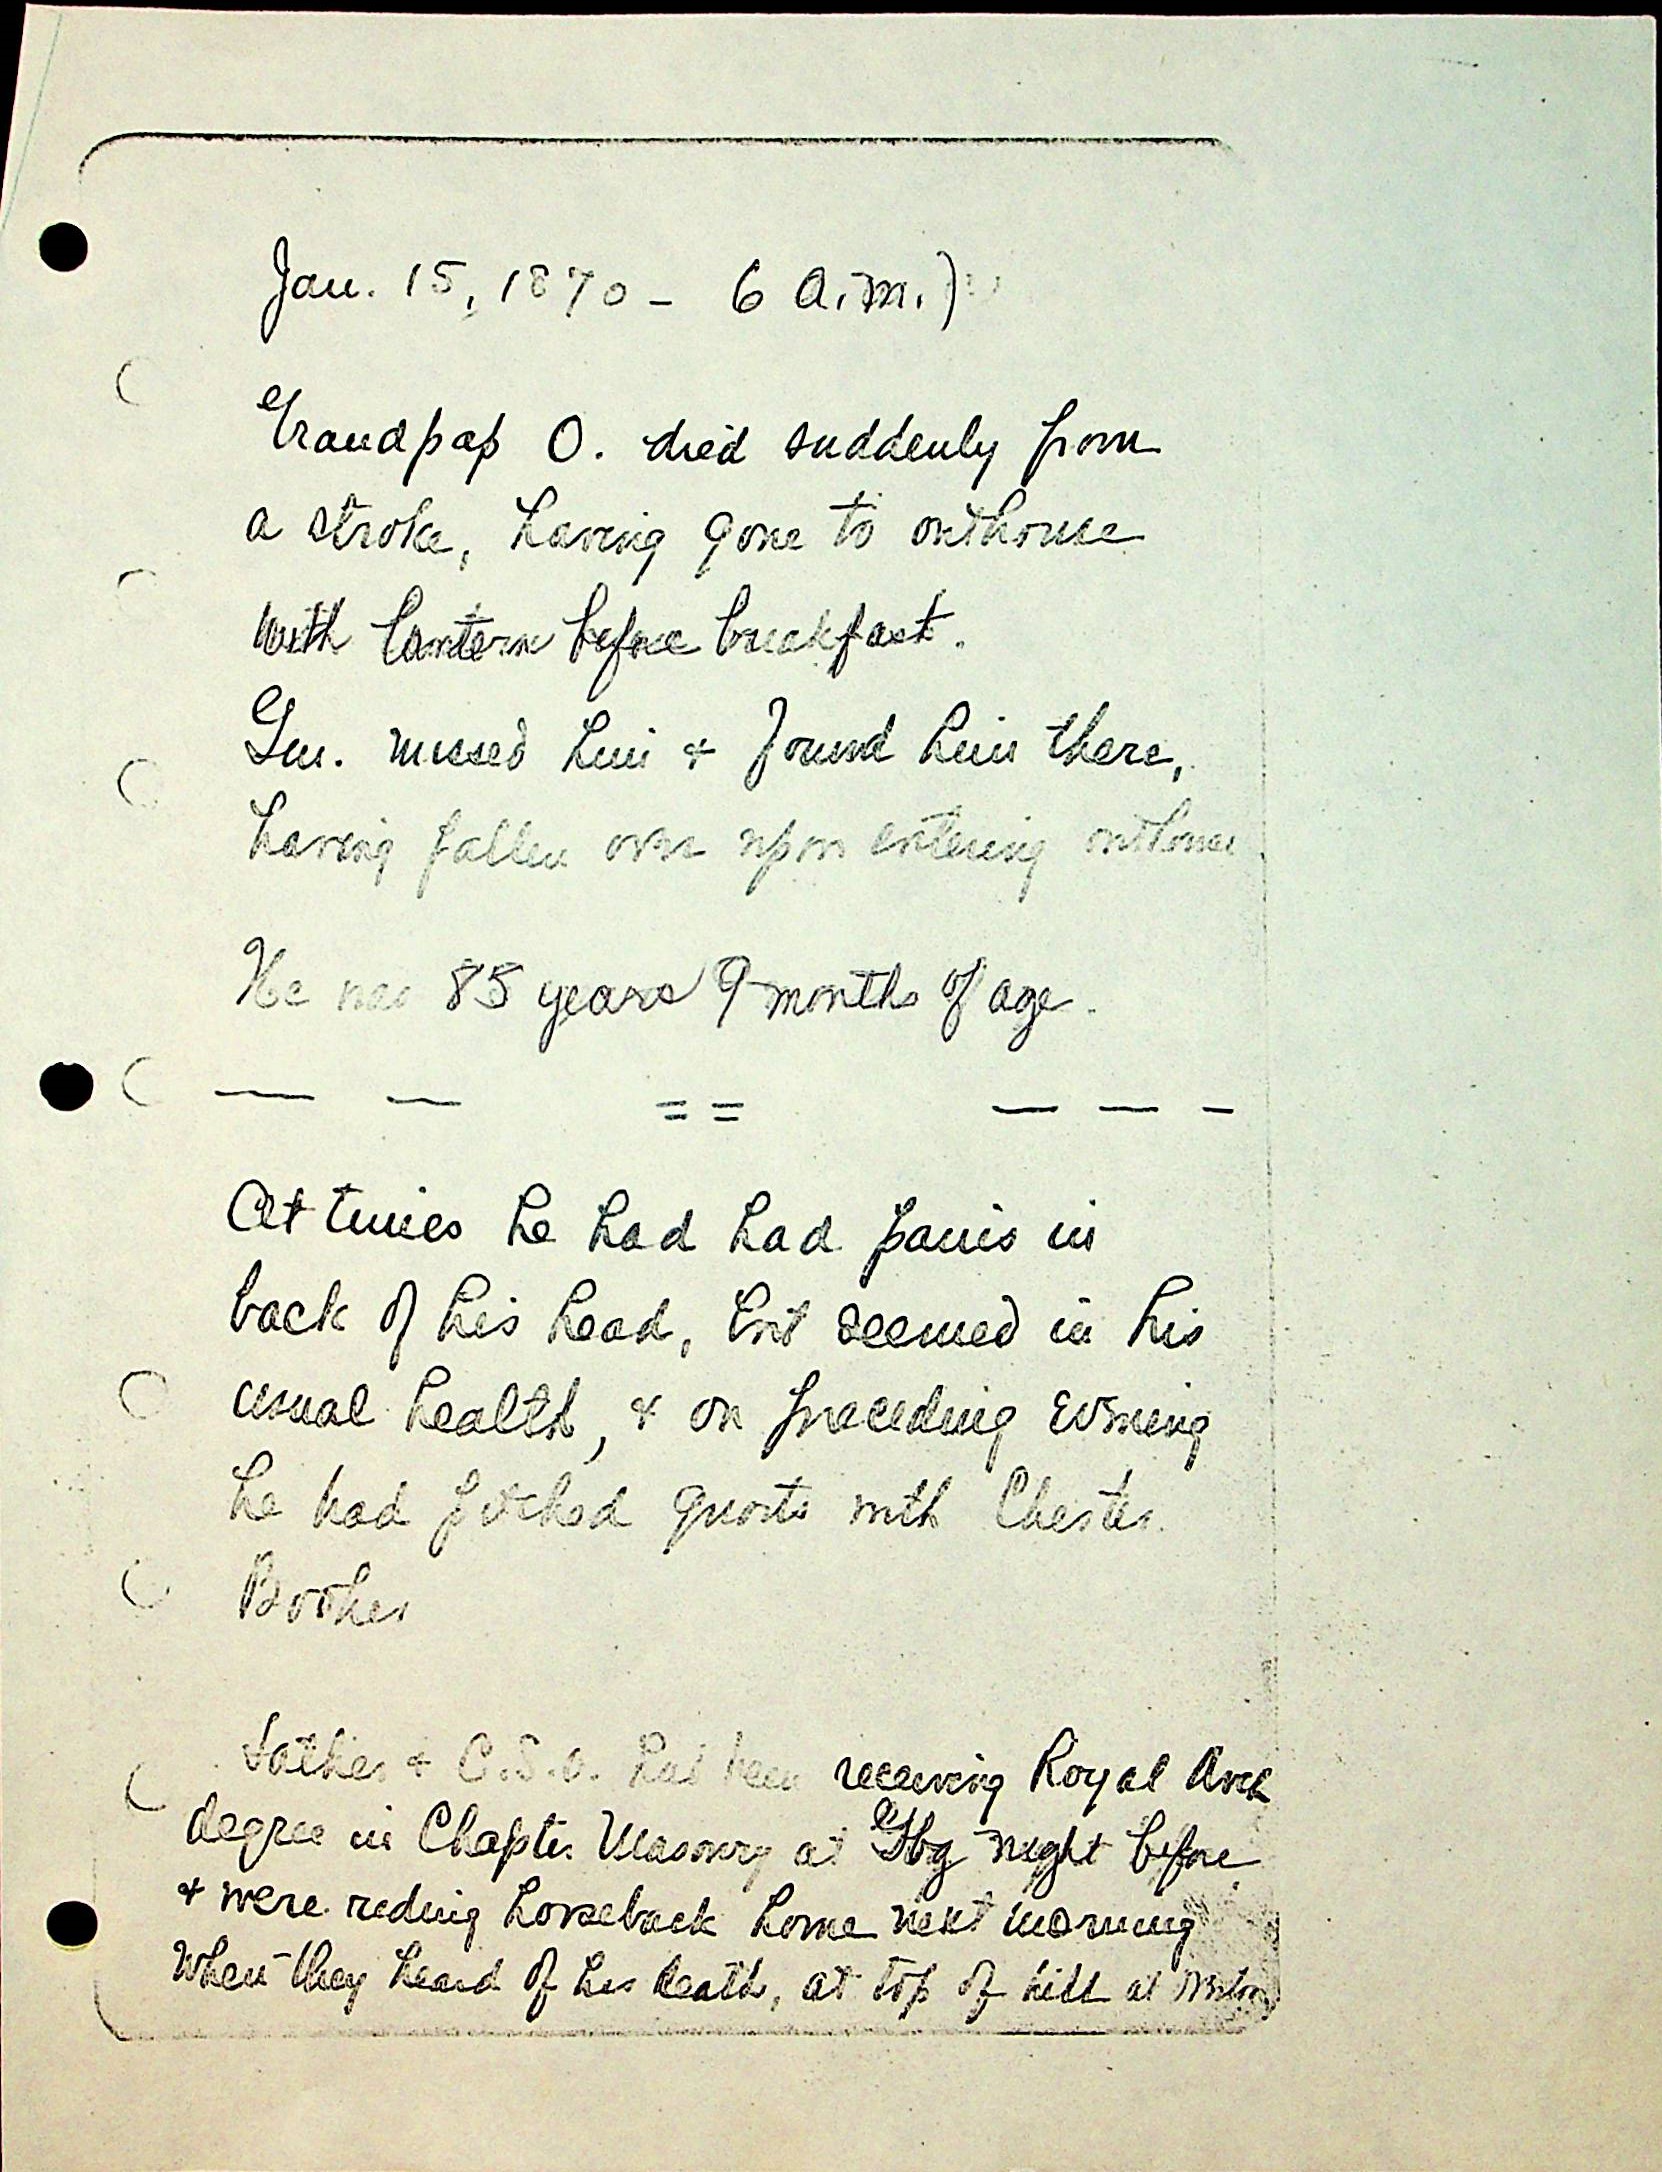 Jan. 15, 1870 - 6 a.m.)
Grandpap O. died suddenly from
a stroke, having gone to outhouse
with lantern before breakfast.
Gm. missed him & found him there,
having fallen over upon entering outhouse
He was 85 years 9 months of age.
— — = = — — -
At times he had had pains in
back of his head, but seemed in his
usual health, & on preceding evening
he had pitched quoits with Chester
Booher
Father & C.S.O. had been receiving Royal Arch
degree in Chapter Masonry at Gbg night before
& were riding horseback home next morning
when they heard of his death, at top of hill at